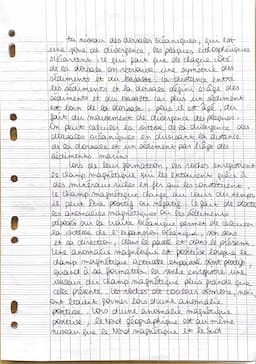 Au niveau des dorsales océaniques, qui est
une zone de divergence, les plaques lithosphériques
s'écartent, ce qui fait que de chaque côté
de la dorsale on retrouve une symétrie des
sédiments et du basalte. La distance entre
les sédiments et la dorsale défini l'âge des
sédiments et du basalte car plus un sédiment
est loin de la dorsale, plus il est âgé, du
fait du mouvement de divergence des plaques.
On peut calculer la vitesse de la divergence des
dorsales océaniques en divisant la distance
de la dorsale et un sédiment par l'âge des
sédiments marins.
Lors de leur formation, les roches enregistrent
le champ magnétique qui les entourent grâce à
des minéraux riches en fer qui les constituent.
Le champ magnétique change au cours du temps
il peut être positif ou négatif. le fait de
les anomalies magnétiques ou les sédiments
déposés sur la croûte océanique permet de calculer
la vitesse de l'expansion océanique, son sens
et sa direction, dans le passé et dans le présent.
Une anomalie magnétique est positive lorsque le
champ magnétique
quand à sa formation la roche enregistre une
valeur du champ magnétique plus grande que
celle présente. les roches de couleur sombre,
ont étaient former lors d'une anomalie
positive. Lors d'une anomalie magnétique
positive, le Nord géographique est au même
niveau que le Nord magnétique et le Sud